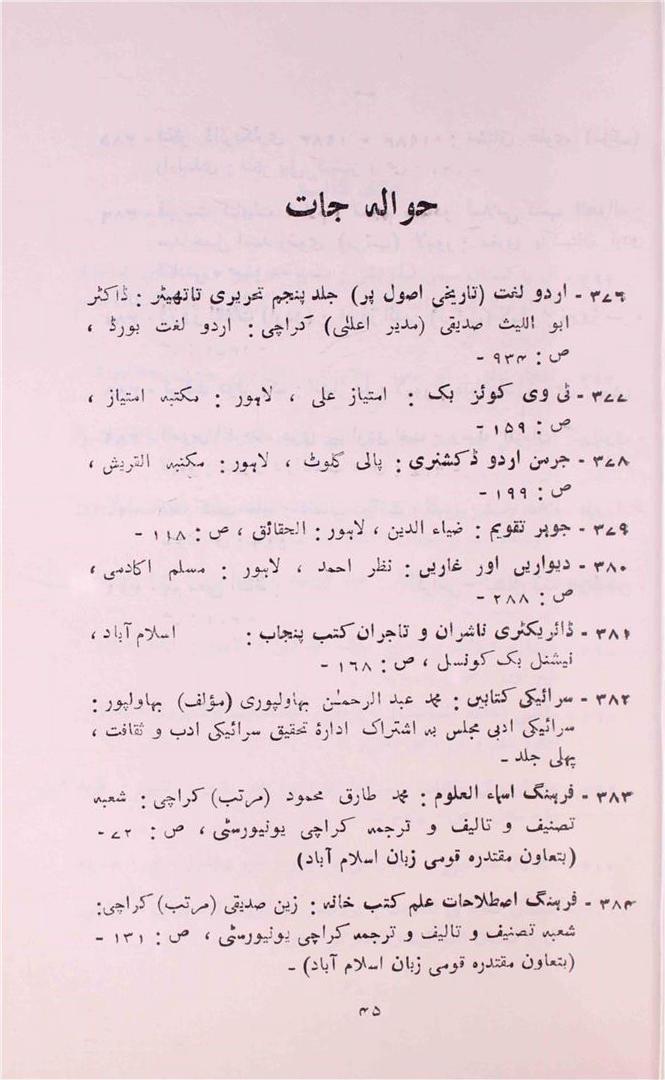 حوالہ جات
۳۷۶ - اردو لغت (تاریخی اصول پر) جلد پنجم تحریری تاتھیٹر : ڈاکٹر
ابو اللیث صدیقی (مدیر اعلیٰ) کراچی : اردو لغت بورڈ ،
ص : ۹۳۴ -
۳۷۷ - ٹی وی کوئز بک : امتیاز علی ، لاہور : مکتبہ امتیاز ،
ص : ۱۵۹ -
۳۷۸ - جرمن اردو ڈکشنری : پالی گلوٹ ، لاہور : مکتبہ القریش ،
ص : ۱۹۹ -
۳۷۹ - جوہر تقویم : ضیاء الدین ، لاہور : الحقائق ، ص : ۱۱۸ -
۳۸۰ - دیواریں اور غاریں : نظر احمد ، لاہور : مسلم اکادمی ،
ص : ۲۸۸ -
۳۸۱ - ڈائریکٹری ناشران و تاجران کتب پنجاب : اسلام آباد ،
نیشنل بک کونسل ، ص : ۱۶۸ -
۳۸۲ - سرائیکی کتابیں : محمد عبد الرحمٰن بہاولپوری (مؤلف) بہاولپور :
سرائیکی ادبی مجلس بہ اشتراک ادارۂ تحقیق سرائیکی ادب و ثقافت ،
پہلی جلد -
۳۸۳ - فرہنگ اسماء العلوم : محمد طارق محمود (مرتب) کراچی : شعبہ
تصنیف و تالیف و ترجمہ کراچی یونیورسٹی ، ص : ۷۲ -
(بتعاون مقتدرہ قومی زبان اسلام آباد)
۳۸۴ - فرہنگ اصطلاحات علم کتب خانہ : زین صدیقی (مرتب) کراچی :
شعبہ تصنیف و تالیف و ترجمہ کراچی یونیورسٹی ، ص : ۱۳۱ -
(بتعاون مقتدرہ قومی زبان اسلام آباد) -
۴۵